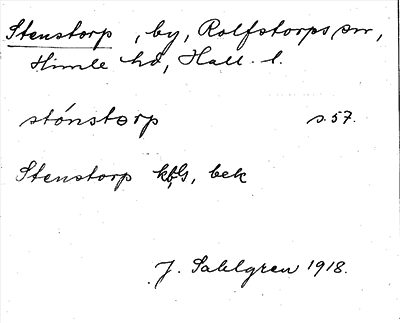 Stenstorp, by, Rolfstorps sn,
Himle hd, Hall. l.
stónstorp s. 57.
Stenstorp bek
J. Sahlgren 1918.